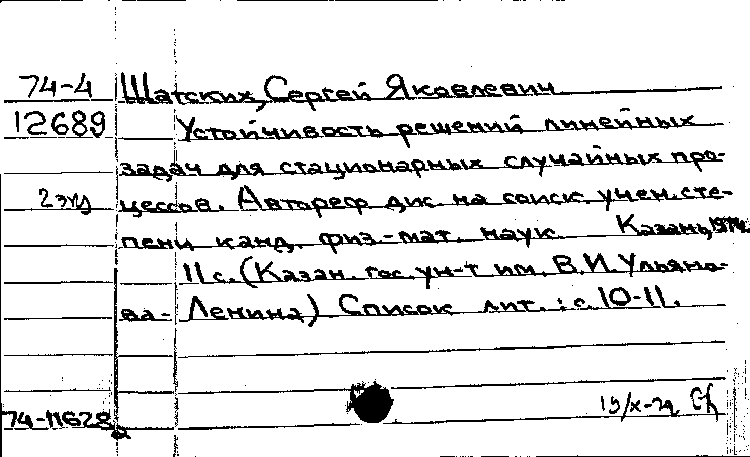 74-4 Шатских, Сергей Яковлевич
12689 Устойчивость решений линейных
задач для стационарных случайных про-
2 экз цессов. Автореф. дис. на соиск. учен. сте-
пени канд. физ.-мат. наук. Казань, 1974.
11 с. (Казан. гос. ун-т им. В.И. Ульяно-
ва-Ленина) Список лит.: с. 10-11.
15/X-74
74-11628а